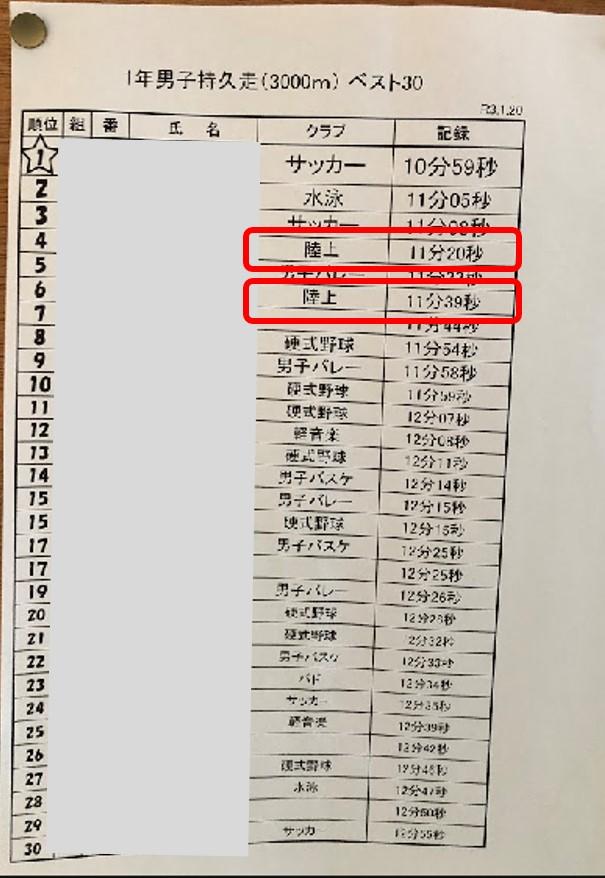 1年男子持久走(3000m) ベスト30
R3.1.20
順位 組 番 氏 名 クラブ 記録
1 サッカー 10分59秒
2 水泳 11分05秒
3 サッカー 11分08秒
4 陸上 11分20秒
5 男子バレー
6 陸上 11分39秒
7 11分44秒
8 硬式野球 11分54秒
9 男子バレー 11分58秒
10 硬式野球 11分59秒
11 硬式野球 12分07秒
12 軽音楽 12分08秒
13 硬式野球 12分11秒
14 男子バスケ 12分14秒
15 男子バレー 12分15秒
15 硬式野球 12分15秒
17 男子バスケ 12分25秒
17 12分25秒
19 男子バレー 12分26秒
20 硬式野球 12分28秒
21 硬式野球 12分32秒
22 男子バスケ 12分33秒
23 バド 12分34秒
24 サッカー 12分35秒
25 軽音楽 12分39秒
26 12分42秒
27 硬式野球 12分46秒
28 水泳 12分47秒
29 12分50秒
30 サッカー 12分55秒